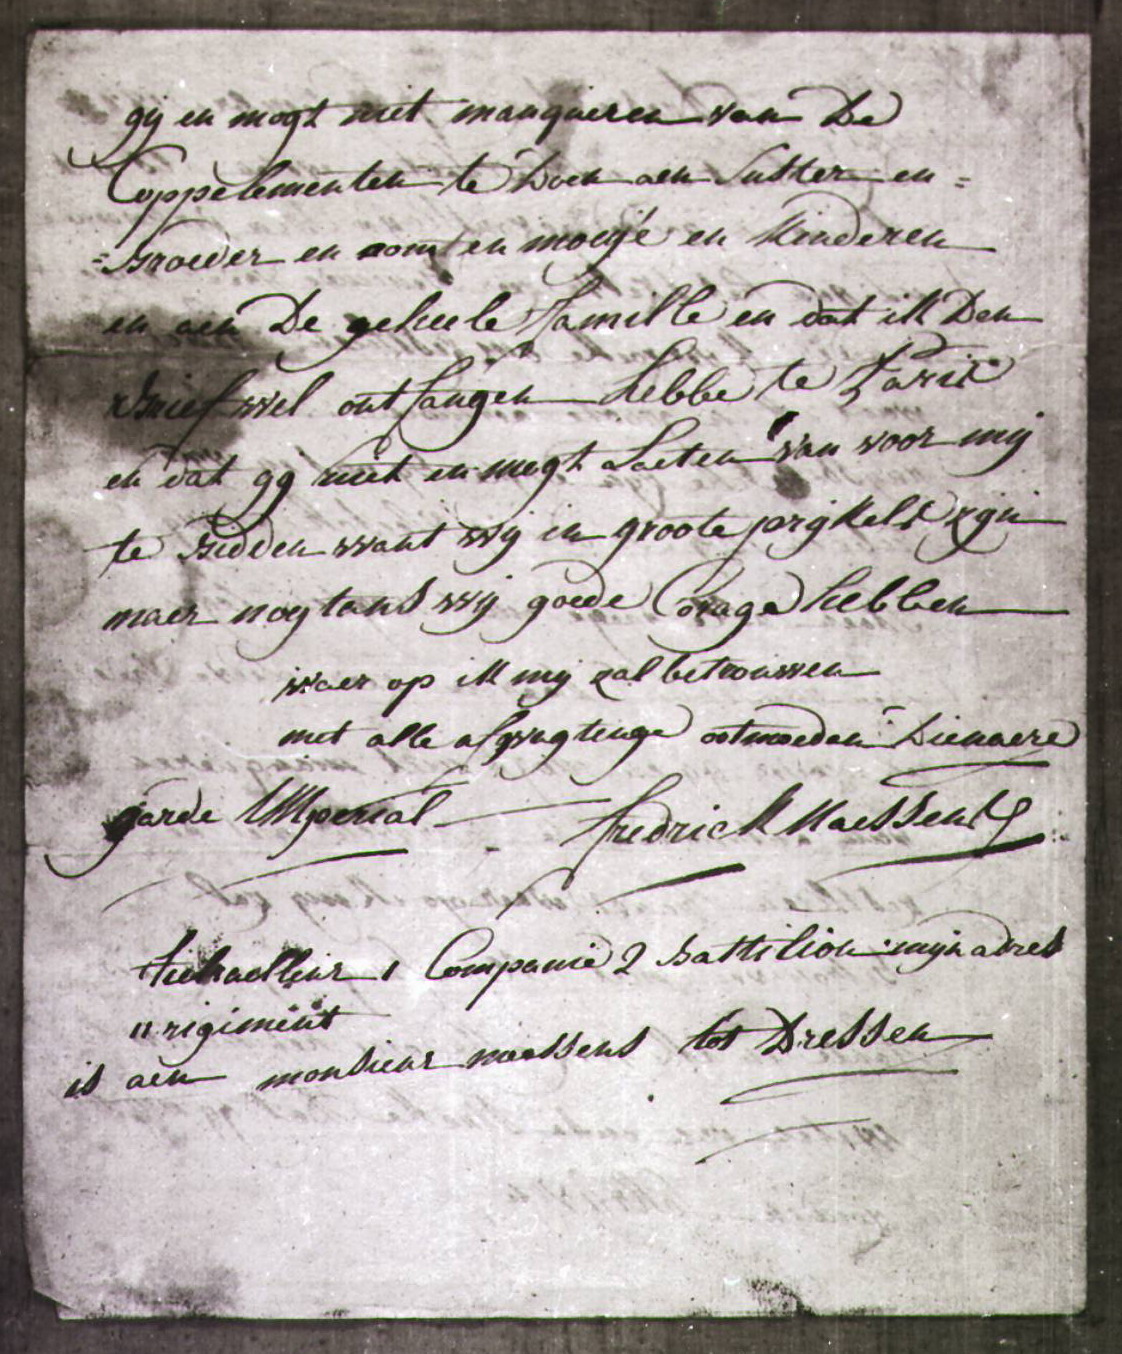 gij en mogt niet manquieren van De
Coppelementen te Doen aen Suster en =
= Broeder en oom en moeijé en Kinderen
en aen De geheele familie en dat ik Den
Brief wel ontfangen hebbe te Paris
en dat gij niet en mogt Laeten van voor mij
te Bidden want wij in groote perijkels zijn
maer nogtans wij goede Corage hebben
waer op ik mij zal betrouwen
met alle afwagtenge ootmoeden Dienaere
garde IMperial fredrick Maessens
Companie 2 Battilion mijn adres
11 rigiment
is aen monsieur maessens tot Dressen